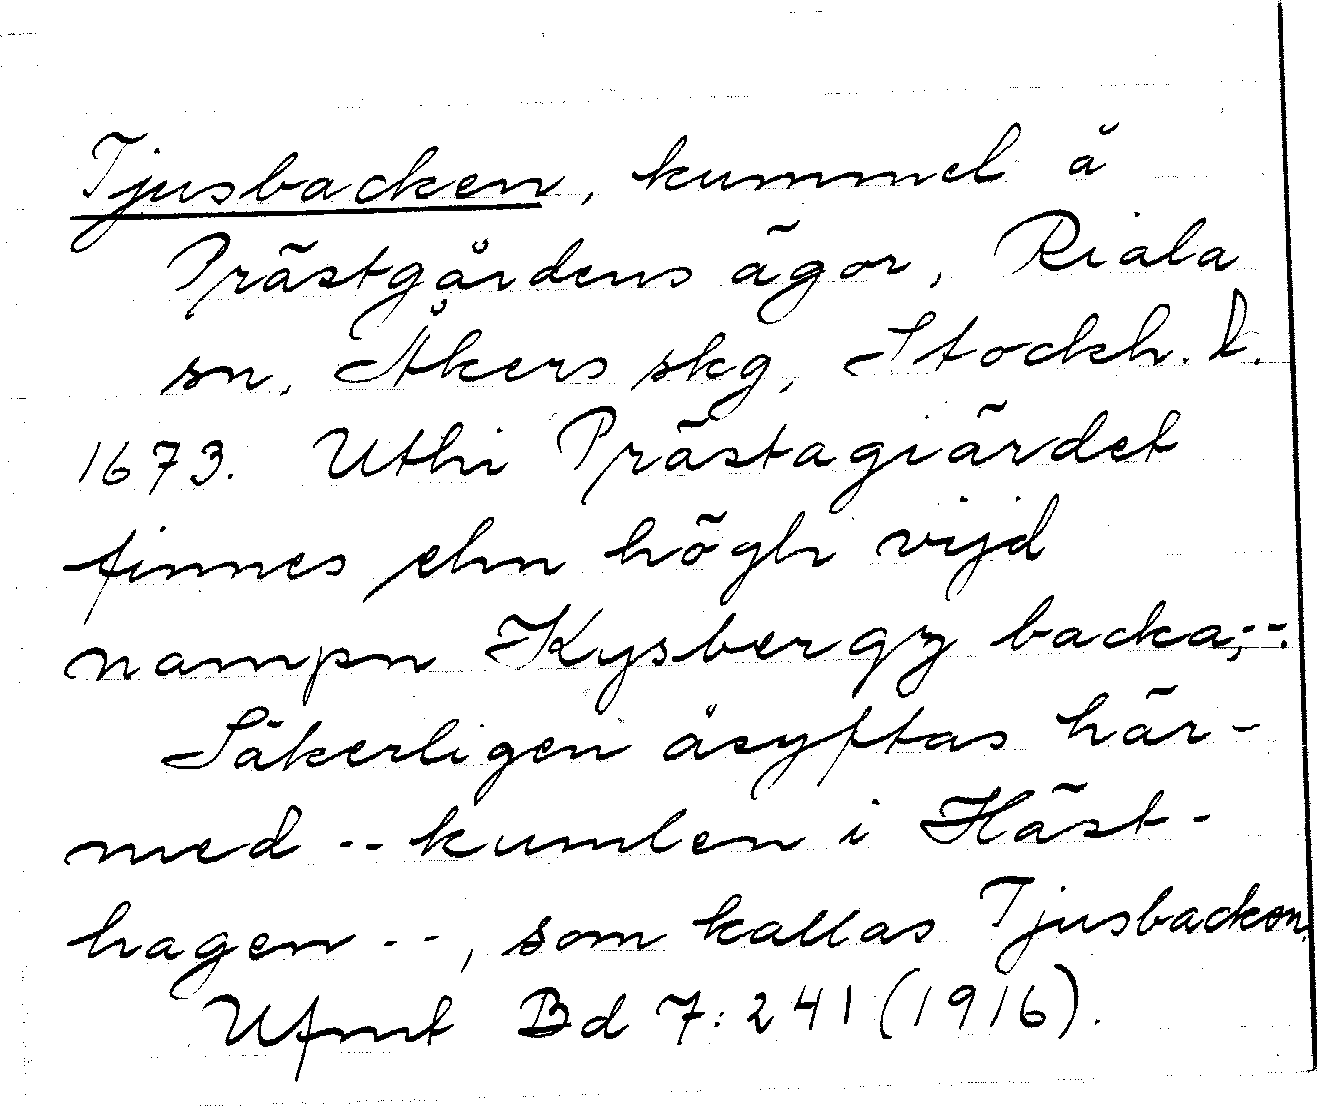 Tjusbacken, kummel å
Prästgårdens ägor, Riala
sn, Åkers skg, Stockh. l.
1673. Uthi Prästagiärdet
finnes ehn högh vijd
nampn Kysbergz backa,--.
Säkerligen åsyftas här-
med -- kumlen i Häst-
hagen --, som kallas Tjusbacken.
Ufmt Bd 7:241 (1916).